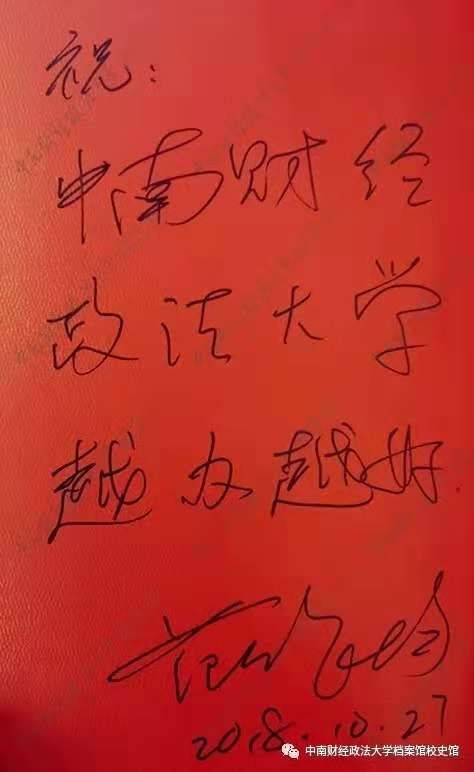 祝：
中南财经
政法大学
越办越好
2018.10.27
中南财经政法大学档案馆校史馆